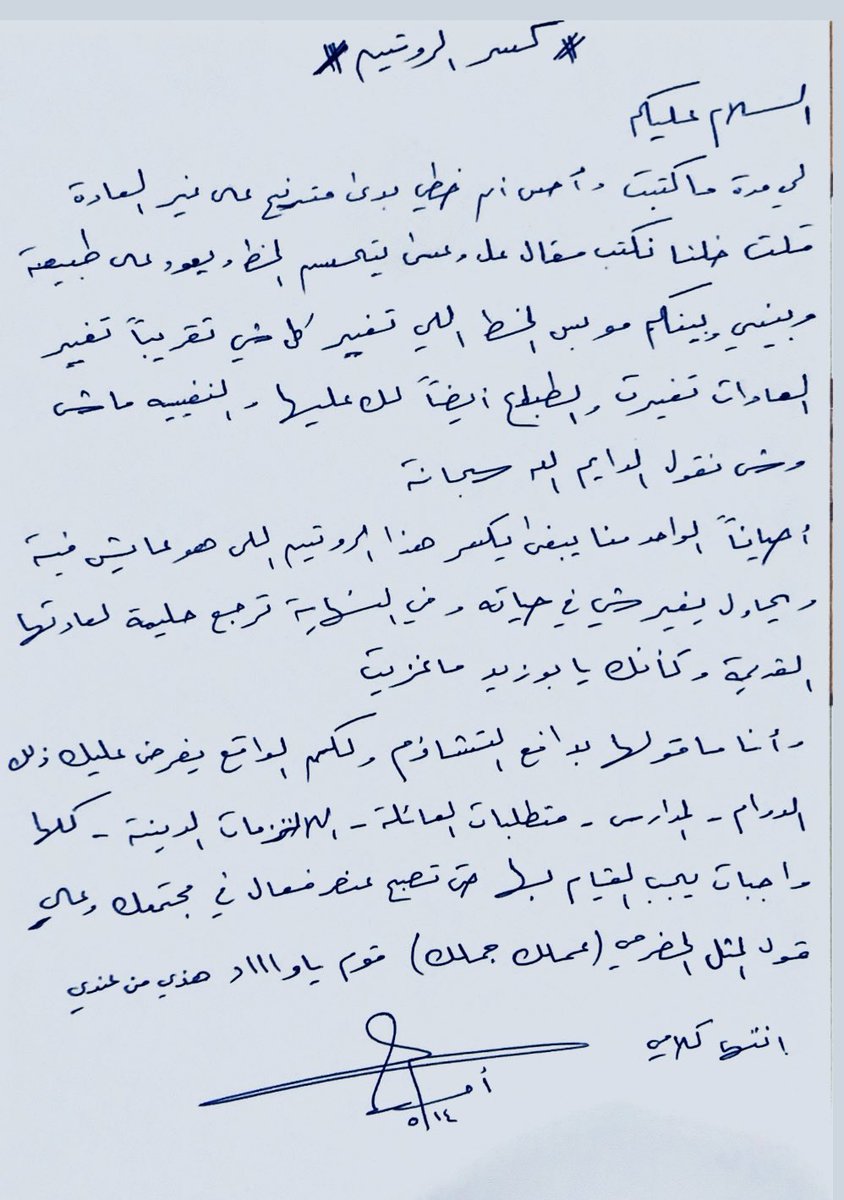 # كسر الروتين #
السلام عليكم
لي مدة ما كتبت وأحس ان خطي بدئ مترنح على غير العادة
قلت خلنا نكتب مقال عل وعسى يتحسن الخط ويعود على طبيعة
وبيني وبينكم مو بس الخط اللي تغير كل شي تقريباً تغير
العادات تغيرت والطباع ايضاً لك عليها والنفييه ماش
وش نقول الدايم الله سبحانة
أحياناً الواحد منا يبغى ايكسر هذا الروتين اللي هو عايش فية
ويحاول يغير شي في حياته وفي النهاية ترجع حليمة لعادتها
القديمة وكأنك يا بوزيد ما غزيت
وأنا ماقولها بدافع التشاؤم ولكن الواقع يفرض عليك ذلك
الدوام - المدارس - متطلبات العائلة - الالتزمات الدينة - كلها
واجبات يجب القيام بها حتى تصبح عنصر فعال في مجتمعك وعلي
قول المثل الحضرمي (عملك جملك) قوم ياواااد هذي من عندي
انتها كلامي
٥/١٤